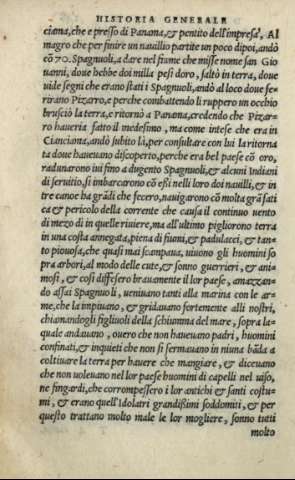 HISTORIA GENERALE
ciama, che e presso di Panama, & pentito dell'impresa, Al
magro che per finire un nauilio partite un poco dipoi, andò
cō 70. Spagnuoli, a dare nel fiume che misse nome san Gio
uanni, doue hebbe doi milla pesi doro, saltò in terra, doue
uide segni che erano stati i Spagnuoli, andò al loco doue fe-
rirano Pizarro, e perche combattendo li ruppero un occhio
brusciò la terra, e ritornò a Panama, credendo che Pizar-
ro haueria fatto il medesimo, ma come intese che era in
Cianciana, andò subito là, per consultare con lui la ritorna
ta doue haueuano discoperto, perche era bel paese cō oro,
radunarono iui fino a dugento Spagnuoli, & alcuni Indiani
di seruitio, si imbarcarono cō essi nelli loro doi nauili, & in
tre canoe ha grādi che fecero, nauigarono cō molta grā fati
ca & pericolo della corrente che causa il continuo uento
di mezo di in quelle riuiere, ma all'ultimo pigliorono terra
in una costa annegata, piena di fiumi, & padulacci, & tan-
to piouosa, che quasi mai scampaua, uiuono gli huomini so
pra arbori, al modo delle cute, & sonno guerrieri, & ani-
mosi, & cosi diffesero brauamente il lor paese, amazzan-
do assai Spagnuoli, ueniuano tanti alla marina con le ar-
me, che la impiuano, & gridauano fortemente alli nostri,
chiamandogli figliuoli della schiumma del mare, sopra la
quale andauano, ouero che non haueuano padri, huomini
confinati, & inqueti che non si fermauano in niuna bāda a
coltiuare la terra per hauere che mangiare, & diceuano
che non uoleuano nel lor paese huomini di capelli nel uiso,
ne fingardi, che corrompessero i lor antichi & santi costu-
mi, & erano quell'Idolatri grandissimi soddomiti, & per
questo trattano molto male le lor mogliere, sonno tutti
molto